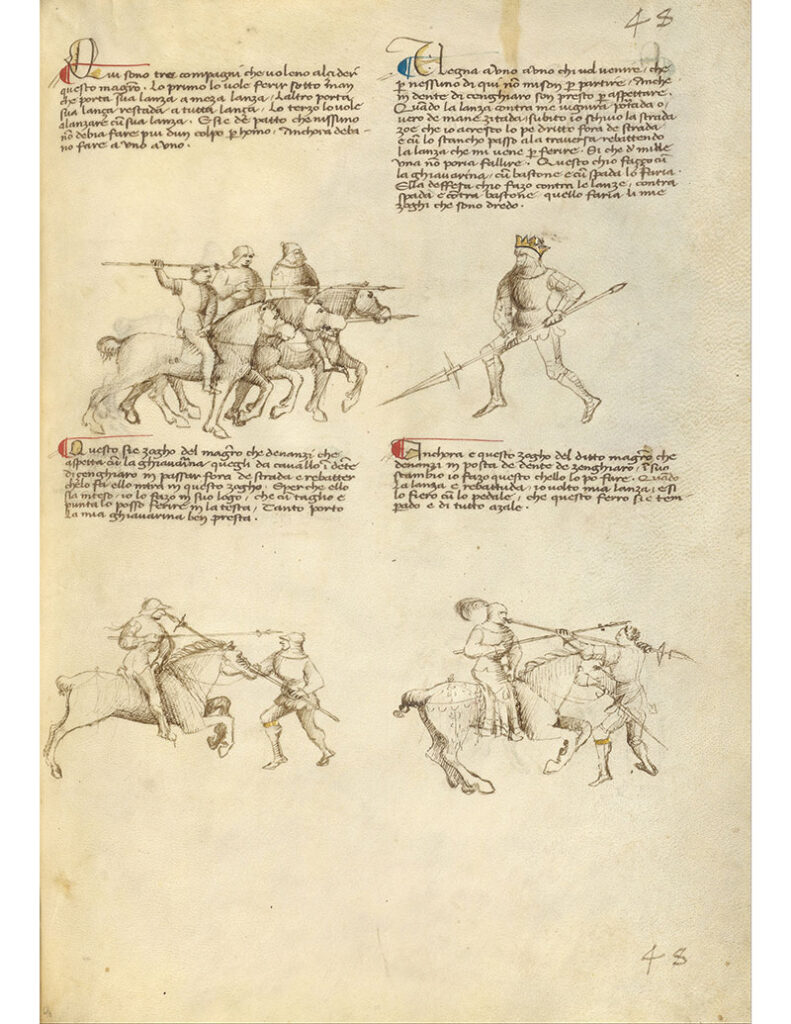 48
Qui sono tre compagni che voleno alcider
questo magro. Lo primo lo vole ferir sotto man
che porta sua lanza a meza lanza. Laltro porta
sua lanza restada a tutta lanza. Lo terzo lo vole
alanzare cũ sua lanza. Si e de patto che nissuno
nõ debia fare piu dun colpo p homo. Anchora deba-
no fare a uno a uno.
Uegna a uno a uno chi vol venire, che
p nessuno di qui nõ mison p partire. Anche
in dente di cenghiaro son presto p aspettare.
Quãdo la lanza contra me vignirà portada o
vero de mane zitada, subito io schivo la strada
zoe che io acresco lo pe dritto fora de strada
e cũ lo stancho passo ala traversa rebattendo
la lanza che mi vene p ferire. Si che d' mille
una nõ poria fallire. Questo chio fazzo cũ
la ghiavarina, cũ bastone e cũ spada lo faria.
E la deffesa chio fazo contra le lanze, contra
spada e cõtra bastone quello faria li mie
zoghi che sono dredo.
Questo si e zogho del magro che denanzi che
aspetta cũ la ghiavarina quegli da cavallo i dẽte
di cenghiaro in passar fora de strada e rebatter
chelo fa ello intra in questo zogho. E per che ello
sia inteso, io lo fazo in suo logo, che cũ taglio e
punta lo posso ferire in la testa, Tanto porto
la mia ghiavarina ben presta.
Anchora e questo zogho del ditto magro che
denanzi in posta de dente de zenghiaro, i suo
scambio io fazo questo chello lo po fare. Quando
la lanza e rebattuda, io volto mia lanza, e si
lo fiero cũ lo pedale, che questo ferro si e tem-
pado e di tutto azale.
48